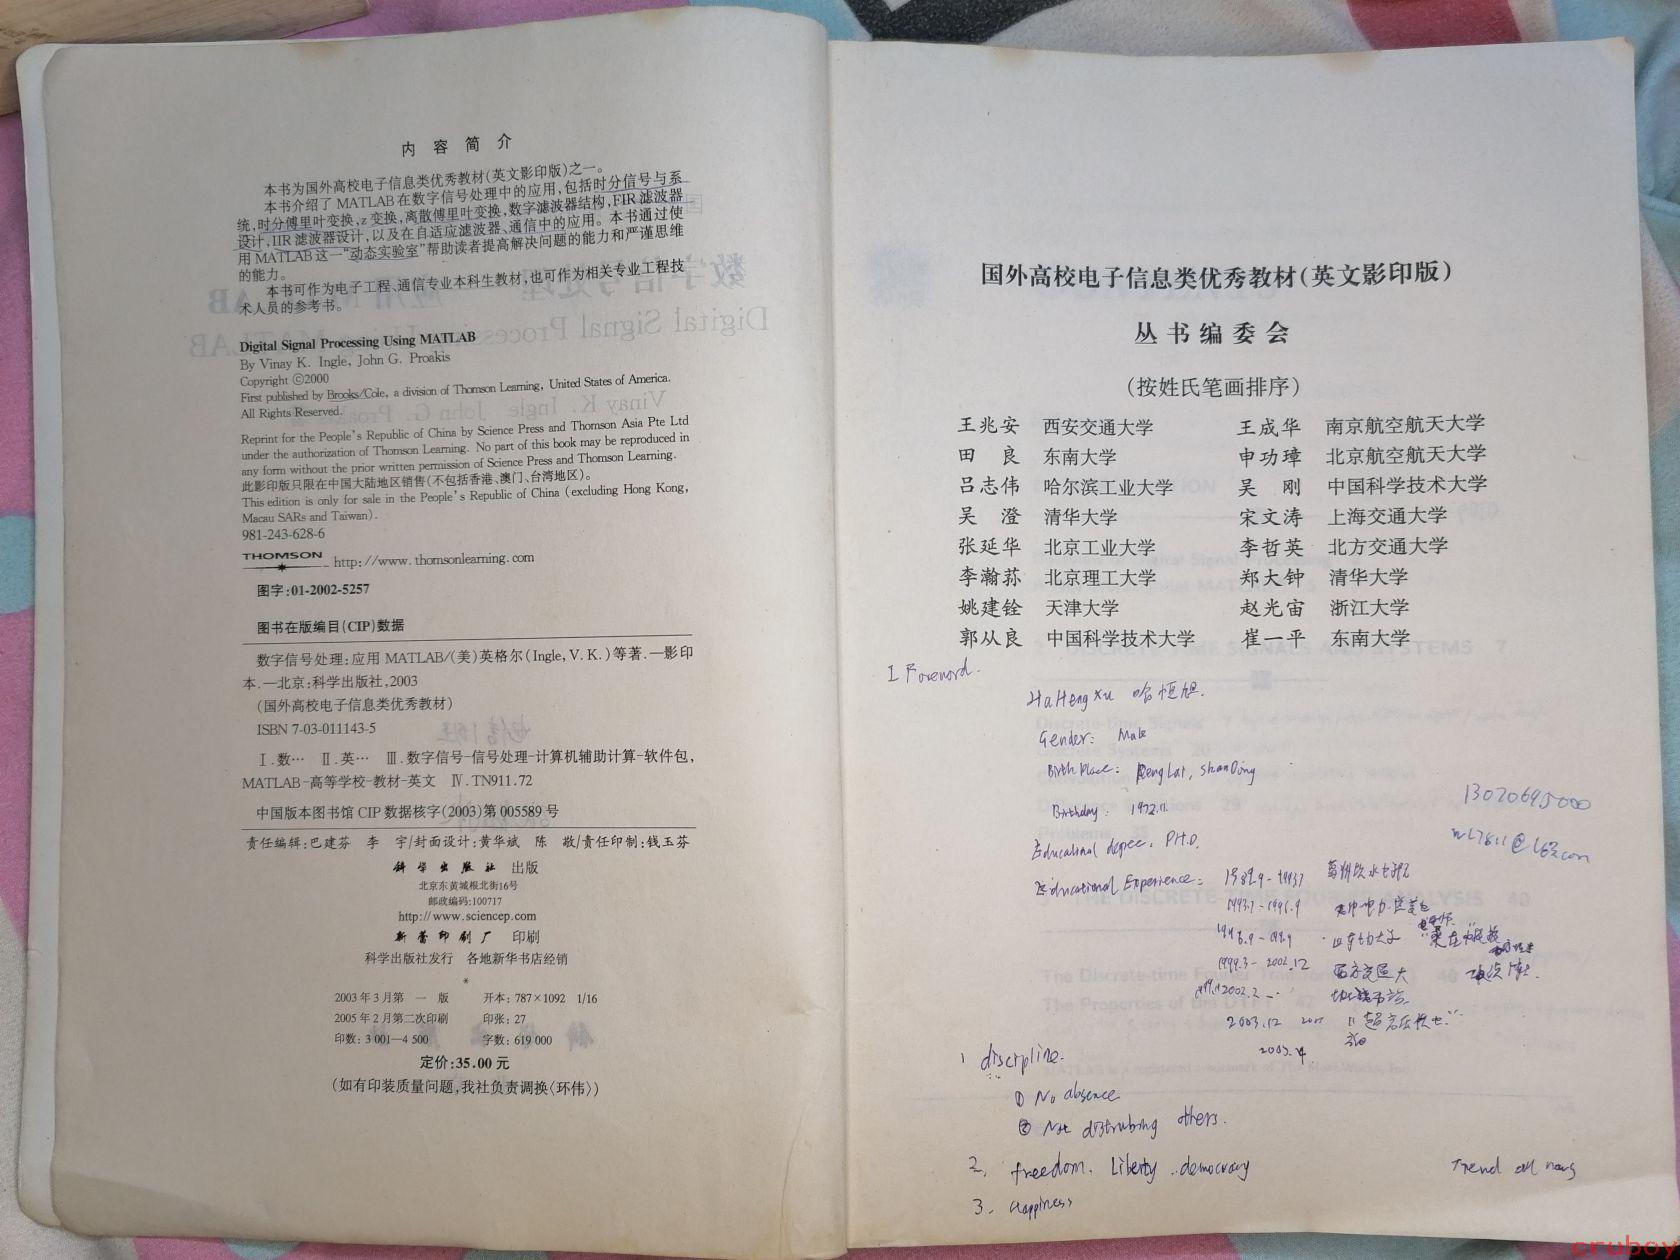 内 容 简 介
本书为国外高校电子信息类优秀教材(英文影印版)之一。
本书介绍了MATLAB在数字信号处理中的应用,包括时分信号与系
统,时分傅里叶变换,z变换,离散傅里叶变换,数字滤波器结构,FIR滤波器
设计,IIR滤波器设计,以及在自适应滤波器、通信中的应用。本书通过使
用MATLAB这一“动态实验室”帮助读者提高解决问题的能力和严谨思维
的能力。
本书可作为电子工程、通信专业本科生教材,也可作为相关专业工程技
术人员的参考书。
Digital Signal Processing Using MATLAB
By Vinay K. Ingle, John G. Proakis
Copyright ©2000
First published by Brooks/Cole, a division of Thomson Learning, United States of America.
All Rights Reserved.
Reprint for the People's Republic of China by Science Press and Thomson Asia Pte Ltd
under the authorization of Thomson Learning. No part of this book may be reproduced in
any form without the prior written permission of Science Press and Thomson Learning.
此影印版只限在中国大陆地区销售(不包括香港、澳门、台湾地区)。
This edition is only for sale in the People's Republic of China (excluding Hong Kong,
Macau SARs and Taiwan).
981-243-628-6
THOMSON http://www.thomsonlearning.com
图字:01-2002-5257
图书在版编目(CIP)数据
数字信号处理:应用 MATLAB/(美)英格尔(Ingle,V.K.)等著.—影印
本.—北京:科学出版社,2003
(国外高校电子信息类优秀教材)
ISBN 7-03-011143-5
Ⅰ.数… Ⅱ.英… Ⅲ.数字信号-信号处理-计算机辅助计算-软件包,
MATLAB-高等学校-教材-英文 Ⅳ.TN911.72
中国版本图书馆CIP数据核字(2003)第005589号
责任编辑:巴建芬 李 宇/封面设计:黄华斌 陈 敬/责任印制:钱玉芬
科学出版社 出版
北京东黄城根北街16号
邮政编码:100717
http://www.sciencep.com
新蕾印刷厂 印刷
科学出版社发行 各地新华书店经销
*
2003年3月第 一 版 开本:787×1092 1/16
2005年2月第二次印刷 印张:27
印数:3 001—4 500 字数:619 000
定价:35.00元
(如有印装质量问题,我社负责调换〈环伟〉)
国外高校电子信息类优秀教材(英文影印版)
丛书编委会
(按姓氏笔画排序)
王兆安 西安交通大学 王成华 南京航空航天大学
田 良 东南大学 申功璋 北京航空航天大学
吕志伟 哈尔滨工业大学 吴 刚 中国科学技术大学
吴 澄 清华大学 宋文涛 上海交通大学
张延华 北京工业大学 李哲英 北方交通大学
李瀚荪 北京理工大学 郑大钟 清华大学
姚建铨 天津大学 赵光宙 浙江大学
郭从良 中国科学技术大学 崔一平 东南大学
I Foreword.
Ha Heng Xu 哈恒旭.
Gender: Male
Birth Place: PengLai, ShanDong
Birthday: 1972.11.
Educational degree. PH.D.
Educational Experience: 1989.9-1993.7
1993.7-1996.9
1996.9-1999.9
1999.3-2002.12 西安交通大
2003.12
13020695000
1 discripline.
① No absence
② Not distrubing others.
2. freedom. Liberty. democracy
3. Happiness
cruboy